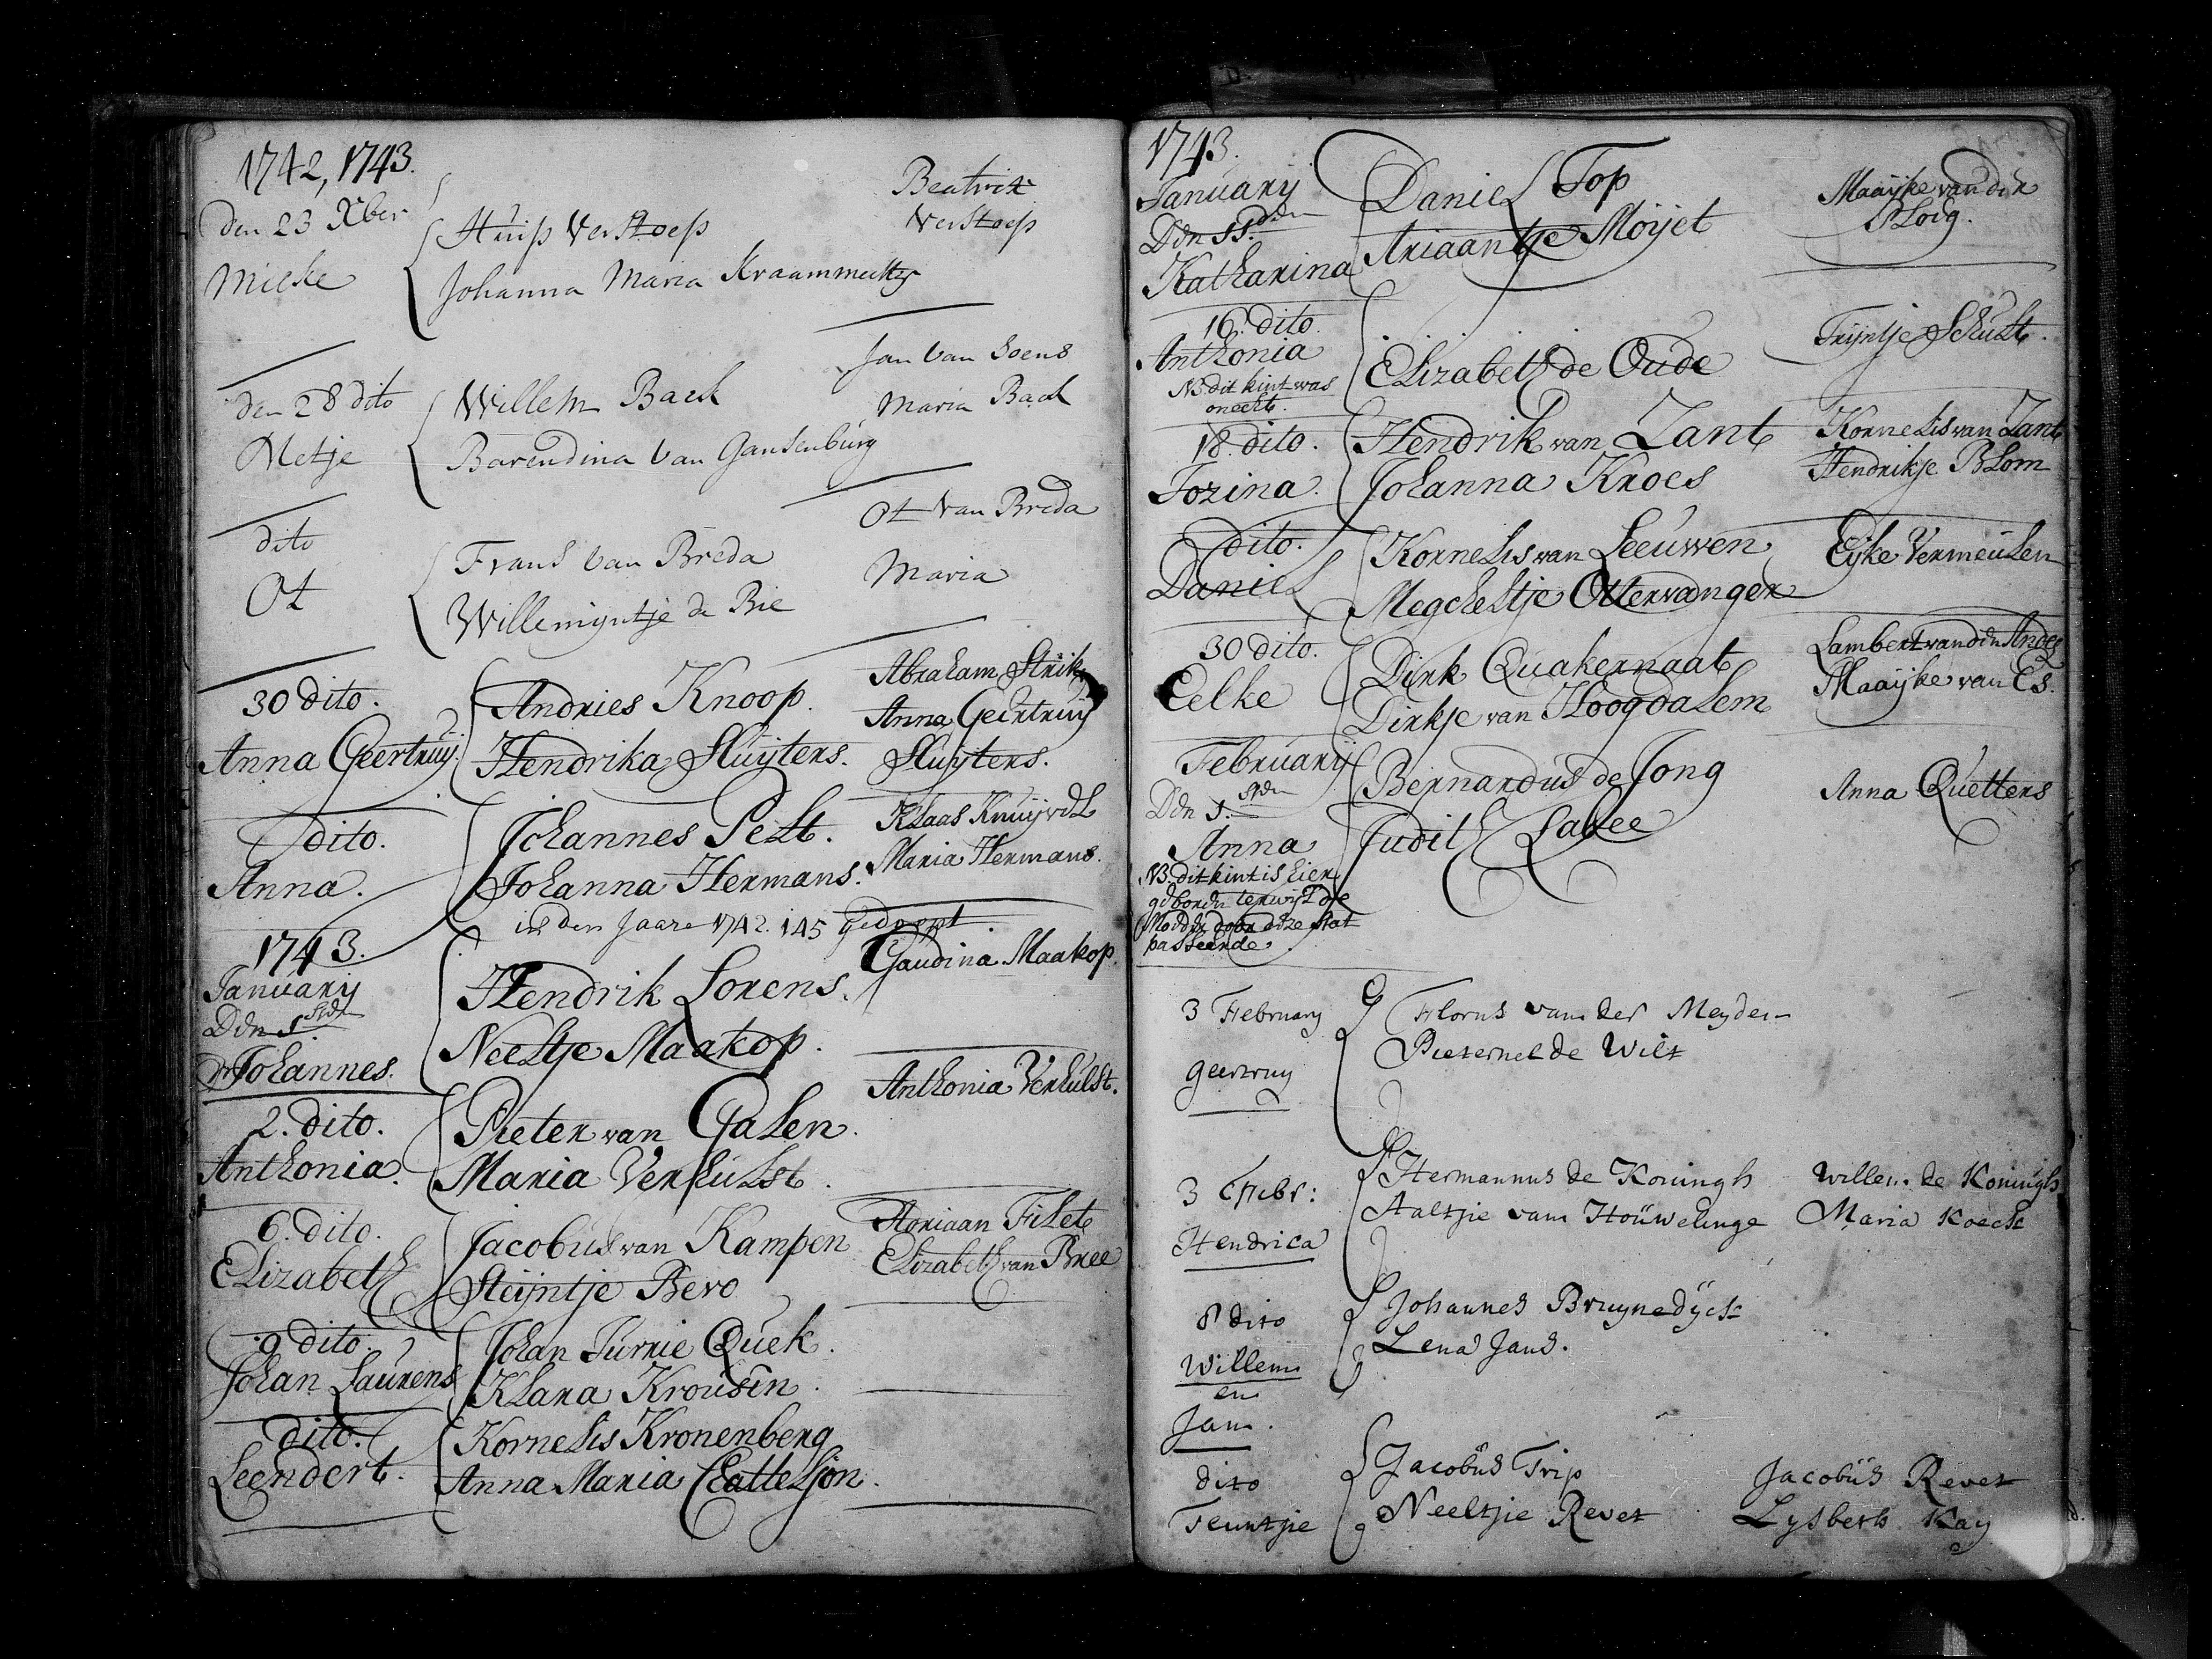 1742, 1743.
den 23 Xber
Mieke
Huijs Verstoep
Johanna Maria
Beatrix
Verstoep
den 28 dito
Metje
Willem Back
Barendina van Gansenburg
Jan van Soens
Maria Back
dito
Ot
Frans van Breda
Willemijntje de Bie
Ot van Breda
Maria
30 dito.
Anna Geertruij.
Andries Knoop.
Hendrika Sluijters.
Abraham Strik
Anna Geertruij
Sluijters.
dito.
Anna.
Johannes Pelt.
Johanna Hermans.
Klaas
Maria Hermans.
in den Jaare 1742. 145 gedoopt
1743.
January
Den 1sten
Johannes.
Hendrik Lorens.
Neeltje Maakop.
Gaudina Maakop.
2. dito.
Anthonia.
Pieter van Galen.
Maria Verhulst.
Anthonia Verhulst.
6. dito.
Elizabeth
Jacobus van Kampen
Steijntje Bero
Adriaan Filet
Elizabeth van Bree
9 dito.
Johan Laurens
Johan Jurrie Quek.
Klara Krousen.
dito.
Leendert.
Kornelis Kronenberg
Anna Maria Chatteljon.
1743.
January
Den 11den
Katharina
Daniel Top
Ariaantje Moijet
Maaijke van der
Ploeg.
16. dito.
Anthonia
NB. dit kint was
onecht.
Elizabeth de Oude
Trijntje Schult.
18. dito.
Jozina.
Hendrik van Zant
Johanna Kroes
Kornelis van Zant
Hendrikje Blom
dito.
Daniel
Kornelis van Leeuwen
Megcheltje Ottervanger
Eijke Vermeulen
30 dito.
Eelke
Dirk Quakernaat
Dirkje van Hoogdalem
Lambert van den Andel
Maaijke van Es.
February
Den 1sten
Anna
NB. dit kint is hier
geboren terwijl de
Moeder door deze stat
passeerde.
Bernardus de Jong
Judith Labee
Anna Quetters
3 February
geertruy
Florus van der Meyden
Pieternel de Wilt
3 Febr:
Hendrica
Hermannus de Koningh
Aaltjie van Houwelinge
Willem de Koningh
Maria Koeck
8 dito
Willem
en
Jan.
Johannes Bruynedyck
Lena Jans.
dito
Teuntjie
Jacobus Trip
Neeltjie Revet
Jacobus Revet
Lysbeth Kay